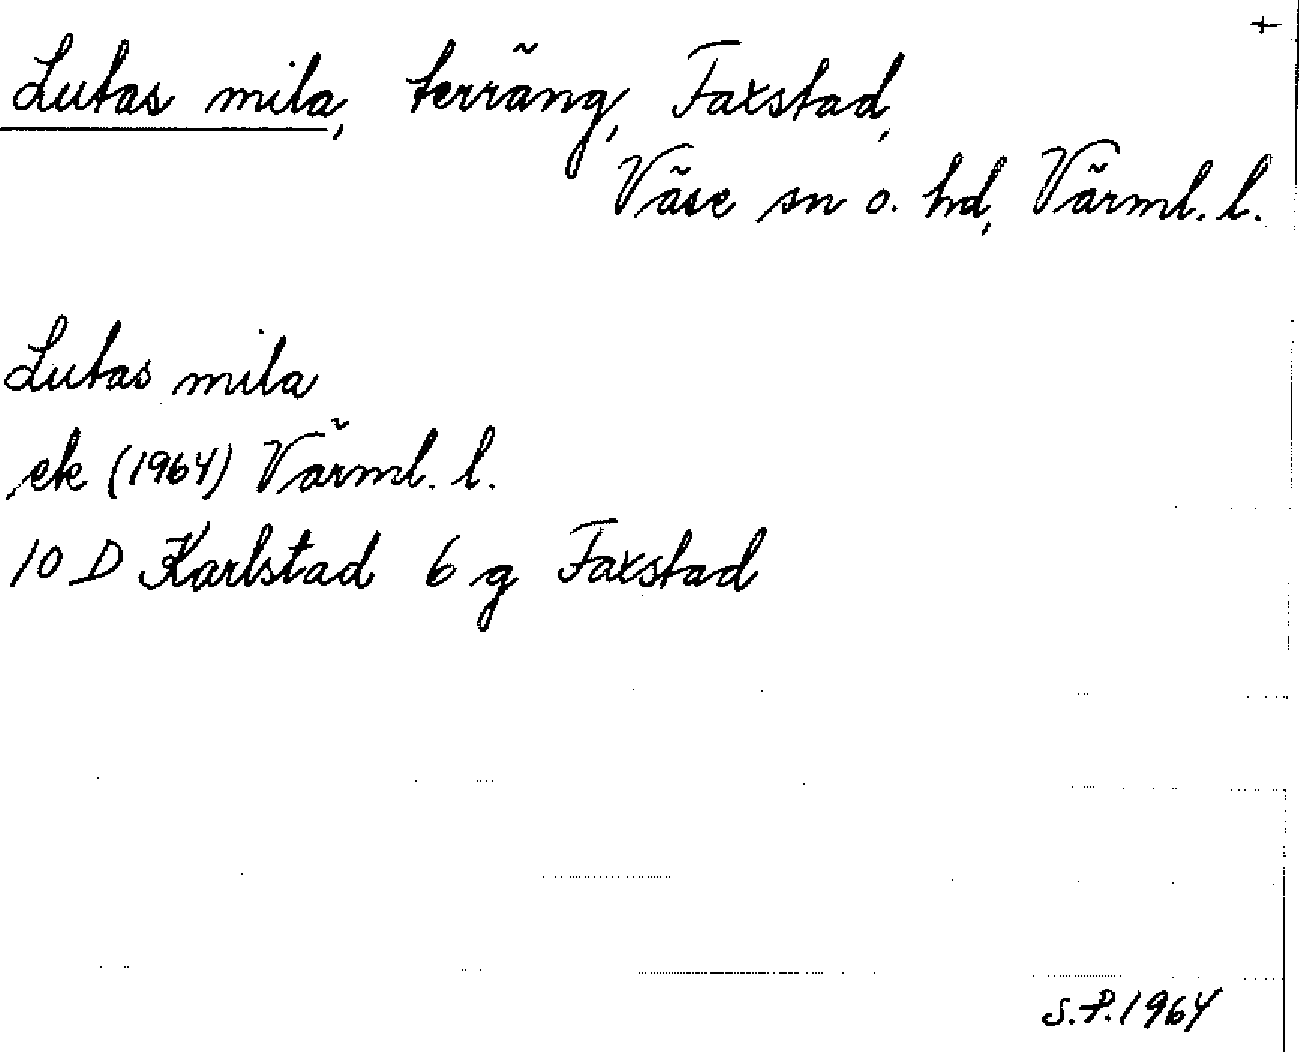 +
Lutas mila, terräng, Faxstad,
Väse sn o. hd, Värml. l.
Lutas mila
ek (1964) Värml. l.
10 D Karlstad 6 g Faxstad
S.P. 1964